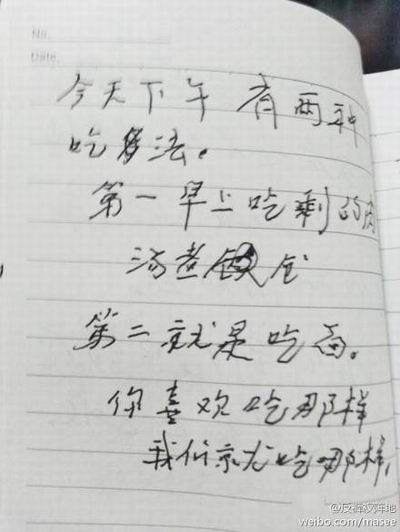 No.
Date.
今天下午有两种
吃法。
第一早上吃剩的肉
汤煮
第二就是吃面。
你喜欢吃那样
我们就吃那样,
weibo.com/masee